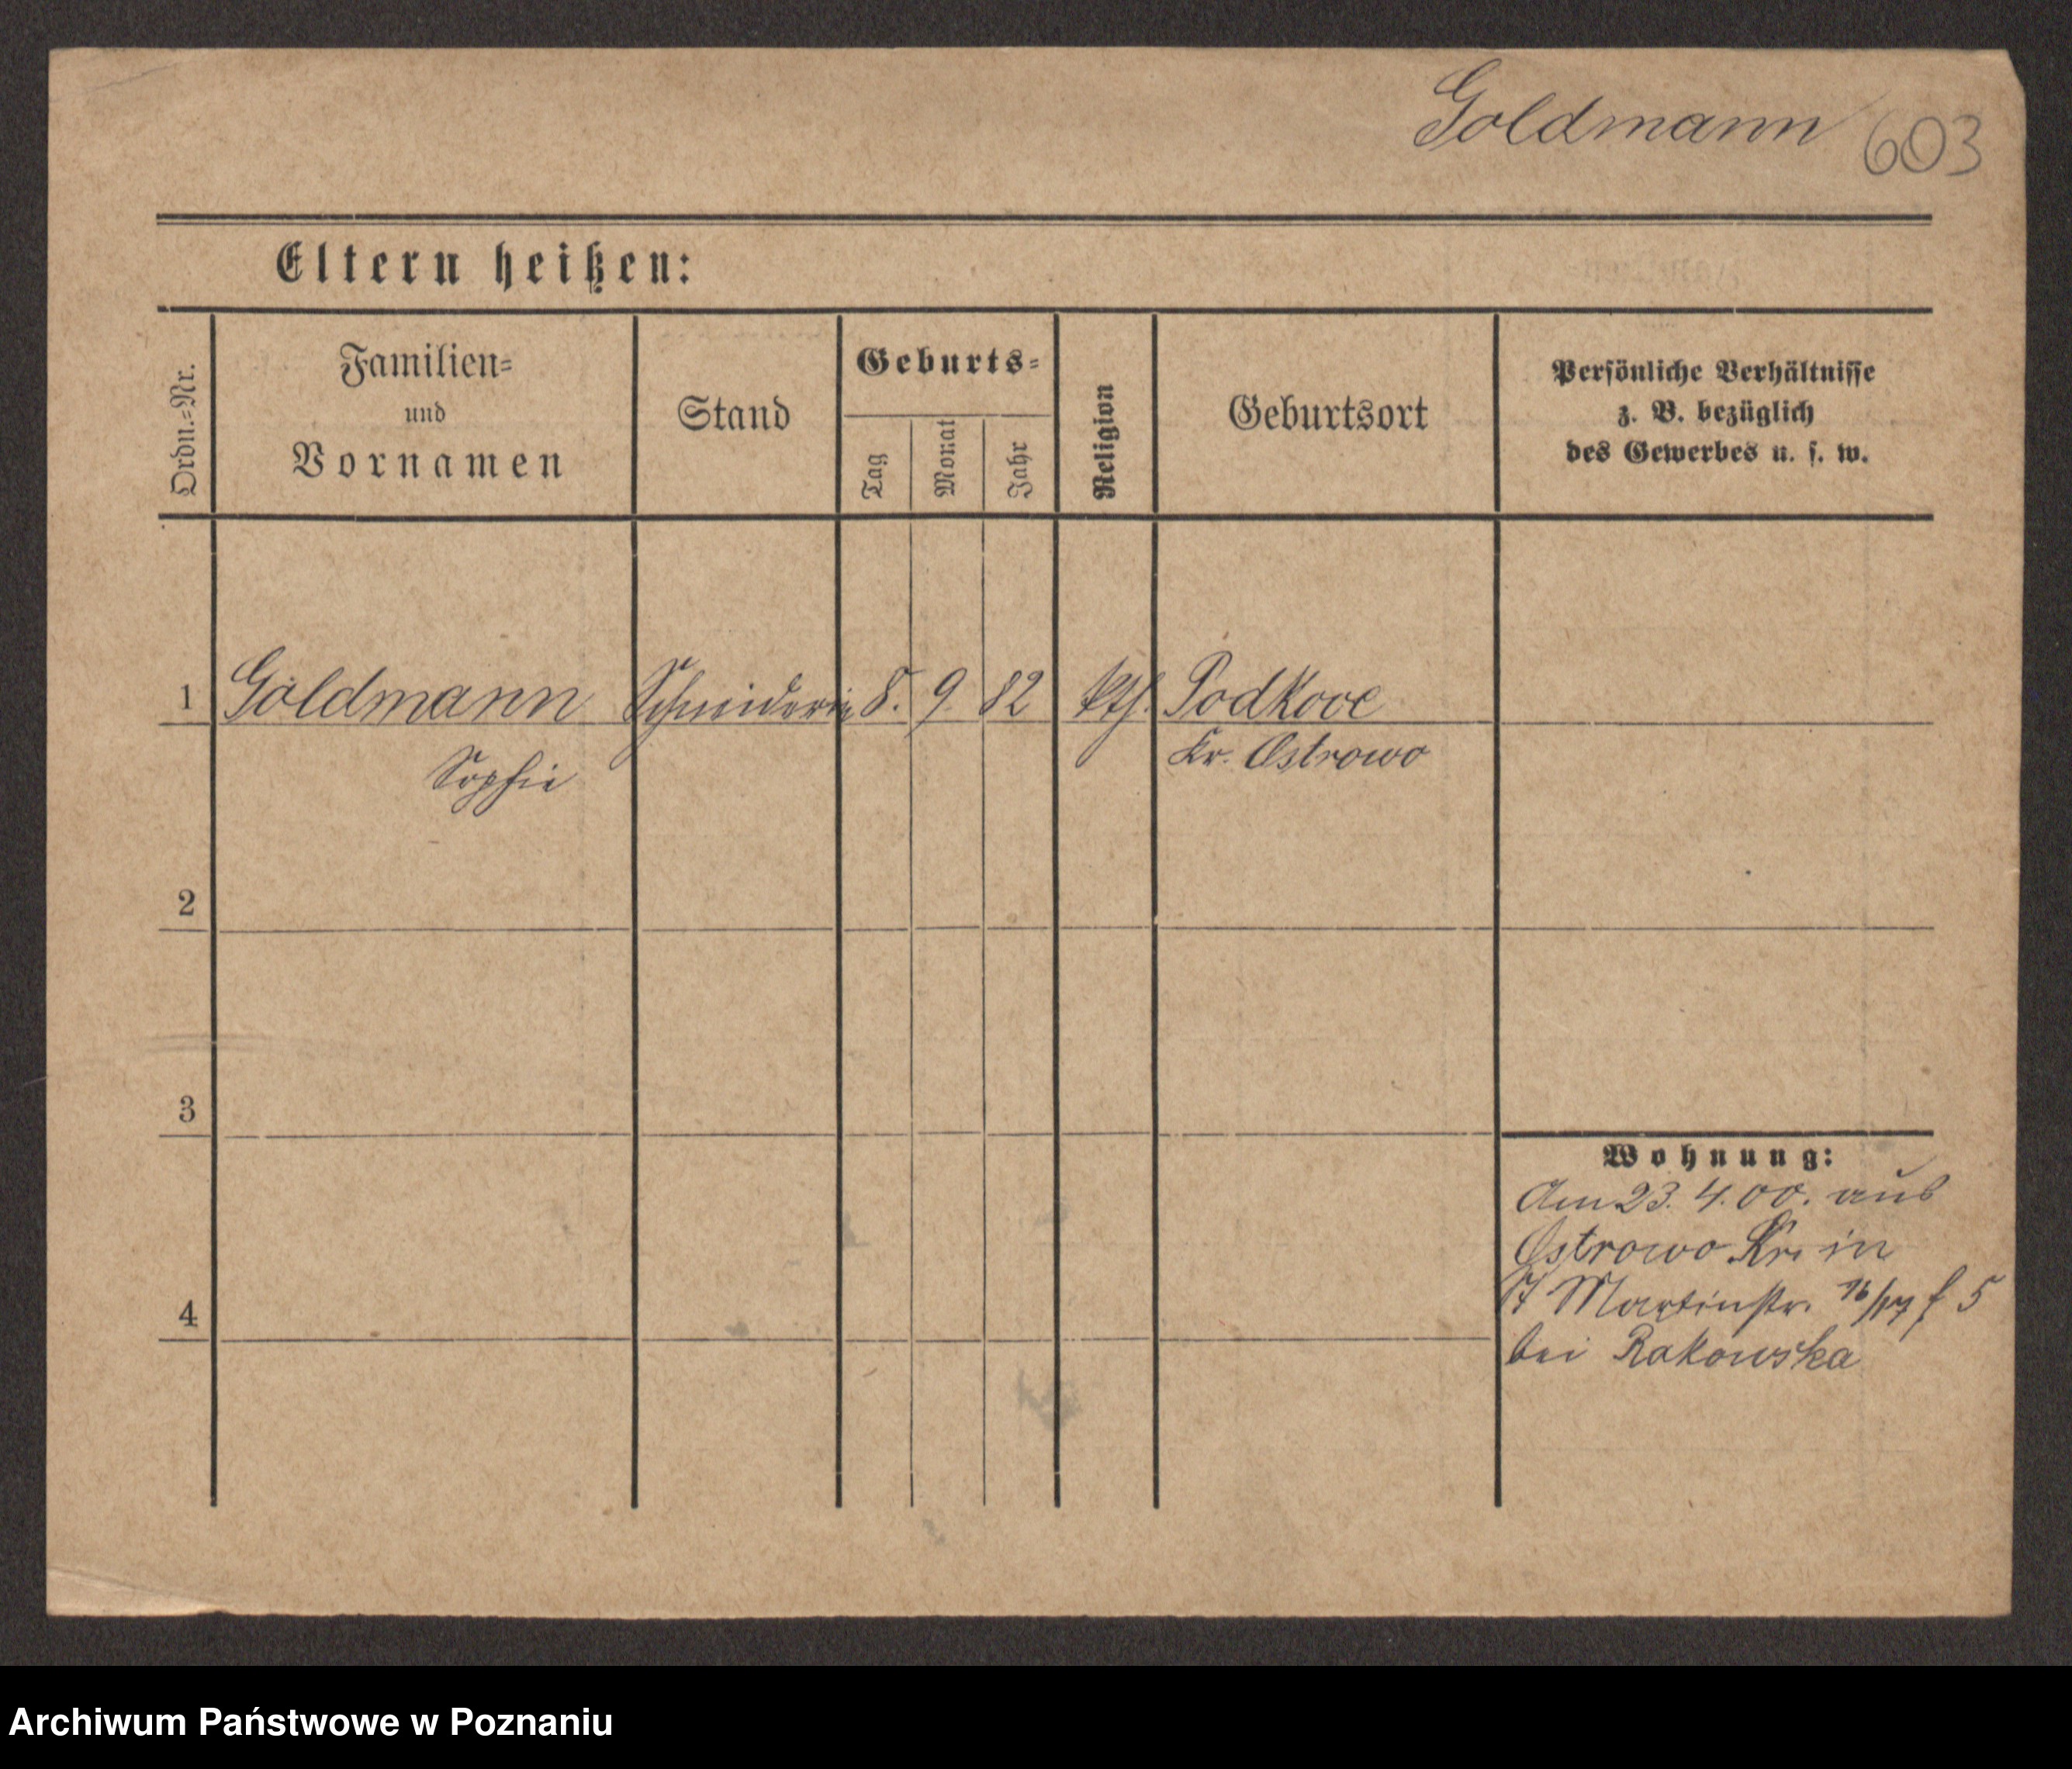 Goldmann 603
Eltern heißen:
Ordn.=Nr.
Familien=
und
Vornamen
Stand
Geburts=
Tag
Monat
Jahr
Religion
Geburtsort
Persönliche Verhältnisse
z. B. bezüglich
des Gewerbes u. s. w.
1 Goldmann Schneiderin 8. 9 82 kth. Podkoce
Sophie Kr. Ostrowo
2
3
Wohnung:
Am 23. 4. 00. aus
Ostrowo Kr. in
St Martinstr. 16/17 f 5
4
bei Rakowska
Archiwum Państwowe w Poznaniu